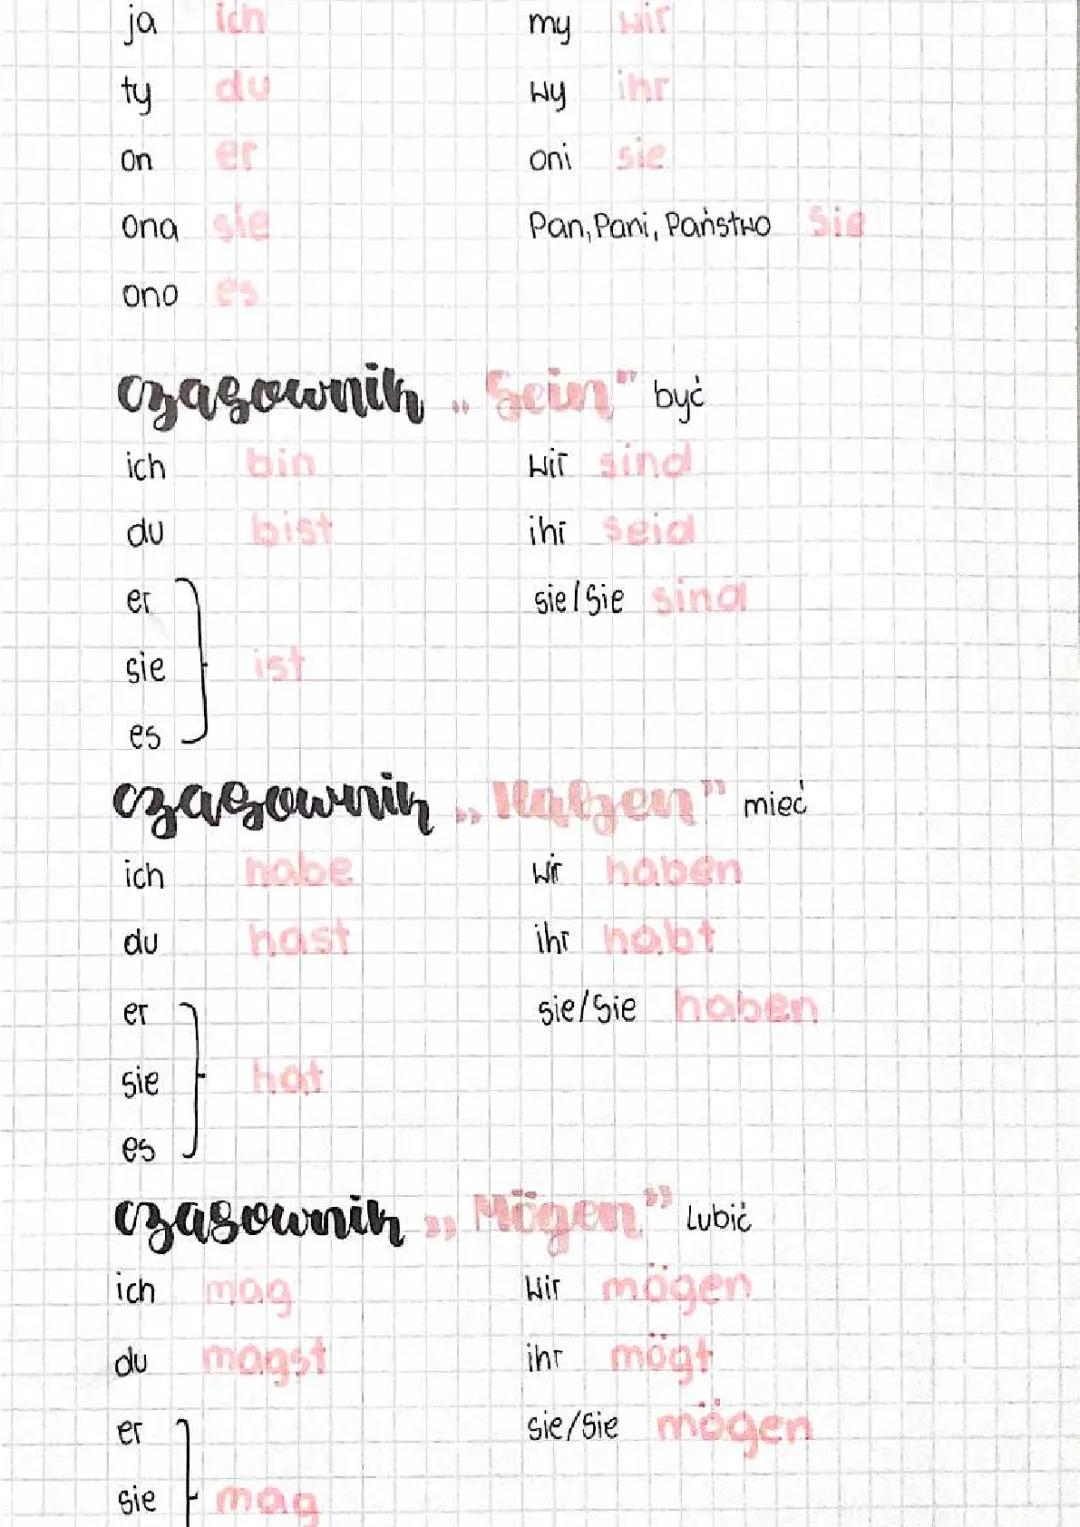 ja ich my wir
ty du wy ihr
on er oni sie
ona sie Pan, Pani, Państwo Sie
ono es
czasownik „Sein" być
ich bin wir sind
du bist ihr seid
er sie/Sie sind
sie ist
es
czasownik „Haben" mieć
ich habe wir haben
du hast ihr habt
er sie/Sie haben
sie hat
es
czasownik „Mögen" Lubić
ich mag wir mögen
du magst ihr mögt
er sie/Sie mögen
sie mag